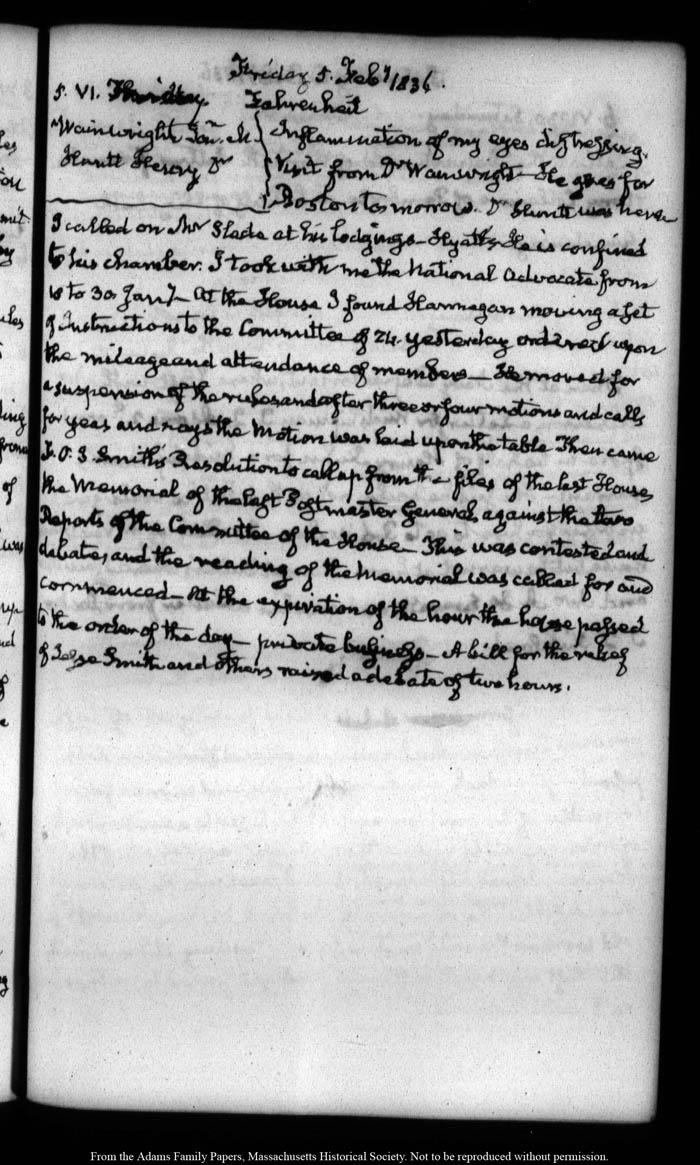 Friday 5. Feby 1836.
5. VI. Thursday. Fahrenheit
Wainwright Jon. M. Inflammation of my eyes distressing.
Huntt Henry Dr Visit from Dr Wainwright— He goes for
Boston to morrow. Dr Huntt was here
I called on Mr Slade at his lodgings— Hyatt's— He is confined
to his chamber. I took with me the National Advocate from
to 30 Jany— At the House I found Hannegan moving a set
of Instructions to the Committee of 24. yesterday ordered upon
the mileage and attendance of members— He moved for
a suspension of the rules and after three or four motions and calls
for yeas and nays the Motion was laid upon the table Then came
F. O. J. Smith's Resolution to call up from the files of the last House,
the Memorial of the last Postmaster General, against the two
Reports of the Committee of the House— This was contested and
debated, and the reading of the memorial was called for and
commenced— At the expiration of the hour the house passed
to the order of the day— private business— A bill for the relief
of Jesse Smith and others raised a debate of two hours.
From the Adams Family Papers, Massachusetts Historical Society. Not to be reproduced without permission.